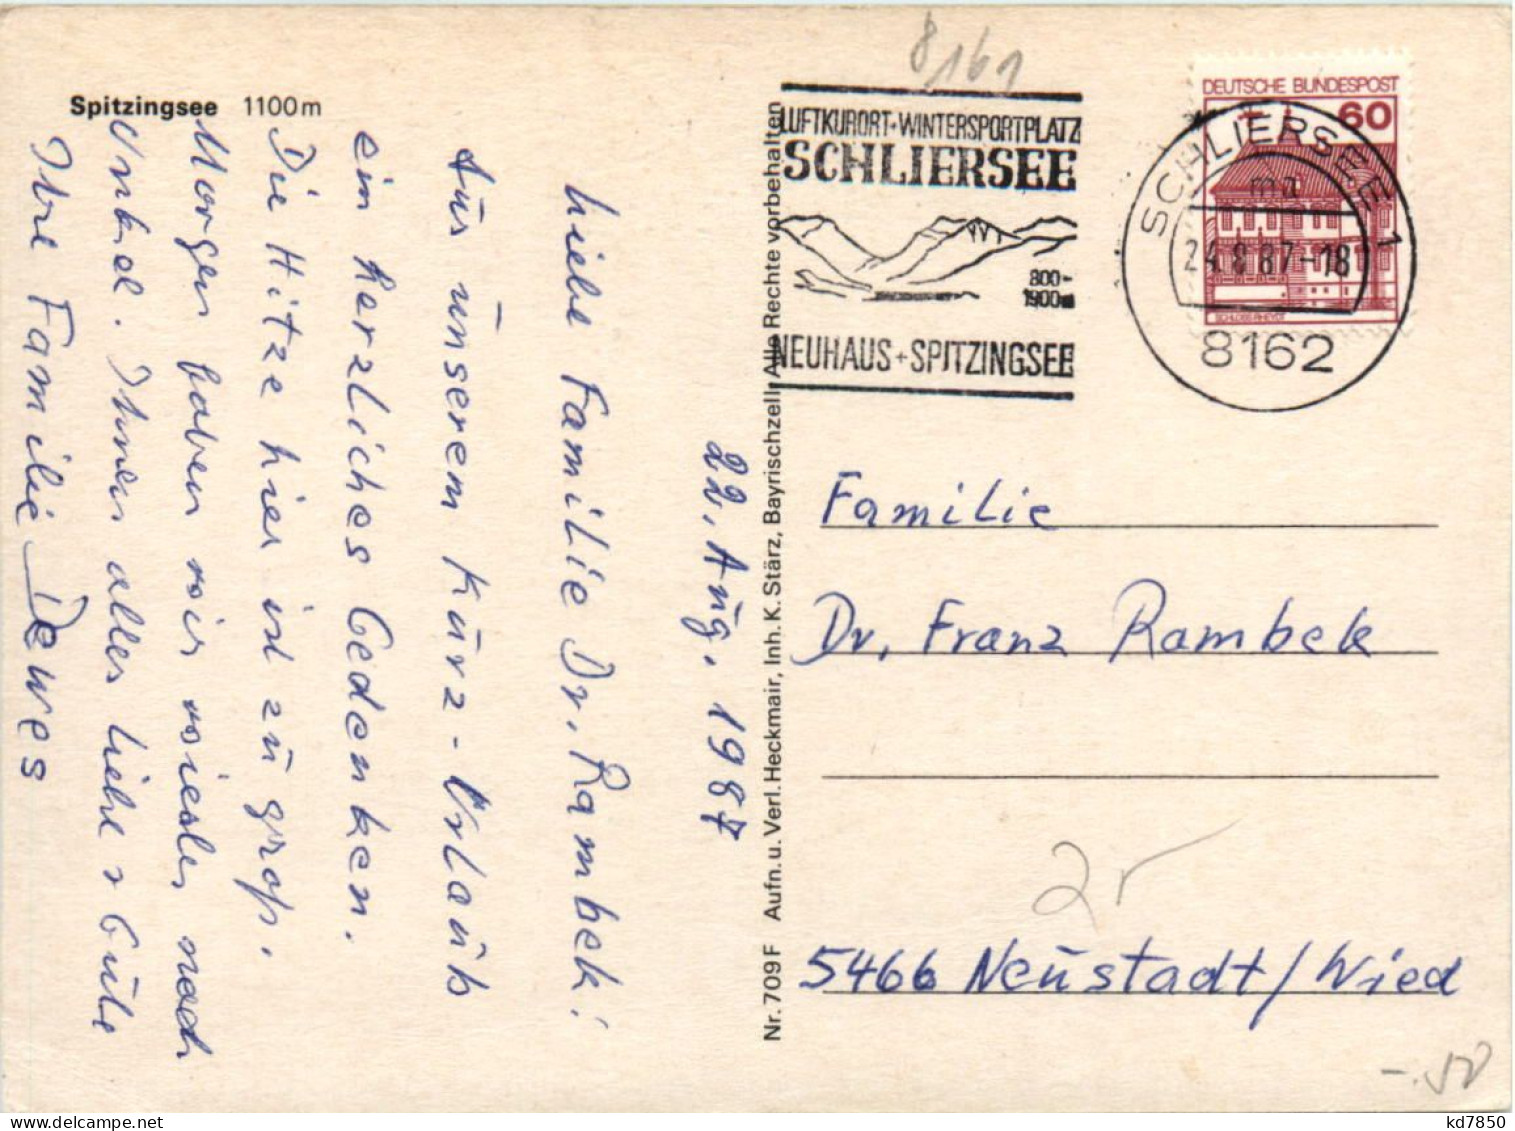 Spitzingsee 1100 m
22. Aug. 1987
Liebe Familie Dr. Rambek!
Aus unserem Kurz-Urlaub
ein herzliches Gedenken.
Die Hitze hier ist zu groß.
Morgen haben wir wieder nach
Unkel. Ihnen alles Liebe u Gute
Ihre Familie Dewes
Nr. 709 F Aufn. u. Verl. Heckmair, Inh. K. Stärz, Bayrischzell. Alle Rechte vorbehalten
8161
LUFTKURORT+WINTERSPORTPLATZ
SCHLIERSEE
800-
1900m
NEUHAUS+SPITZINGSEE
DEUTSCHE BUNDESPOST
60
SCHLOSS RHEYDT
SCHLIERSEE 1
ma
24.8.87-18
8162
Familie
Dr. Franz Rambek
5466 Neustadt/Wied
-.50
kd7850